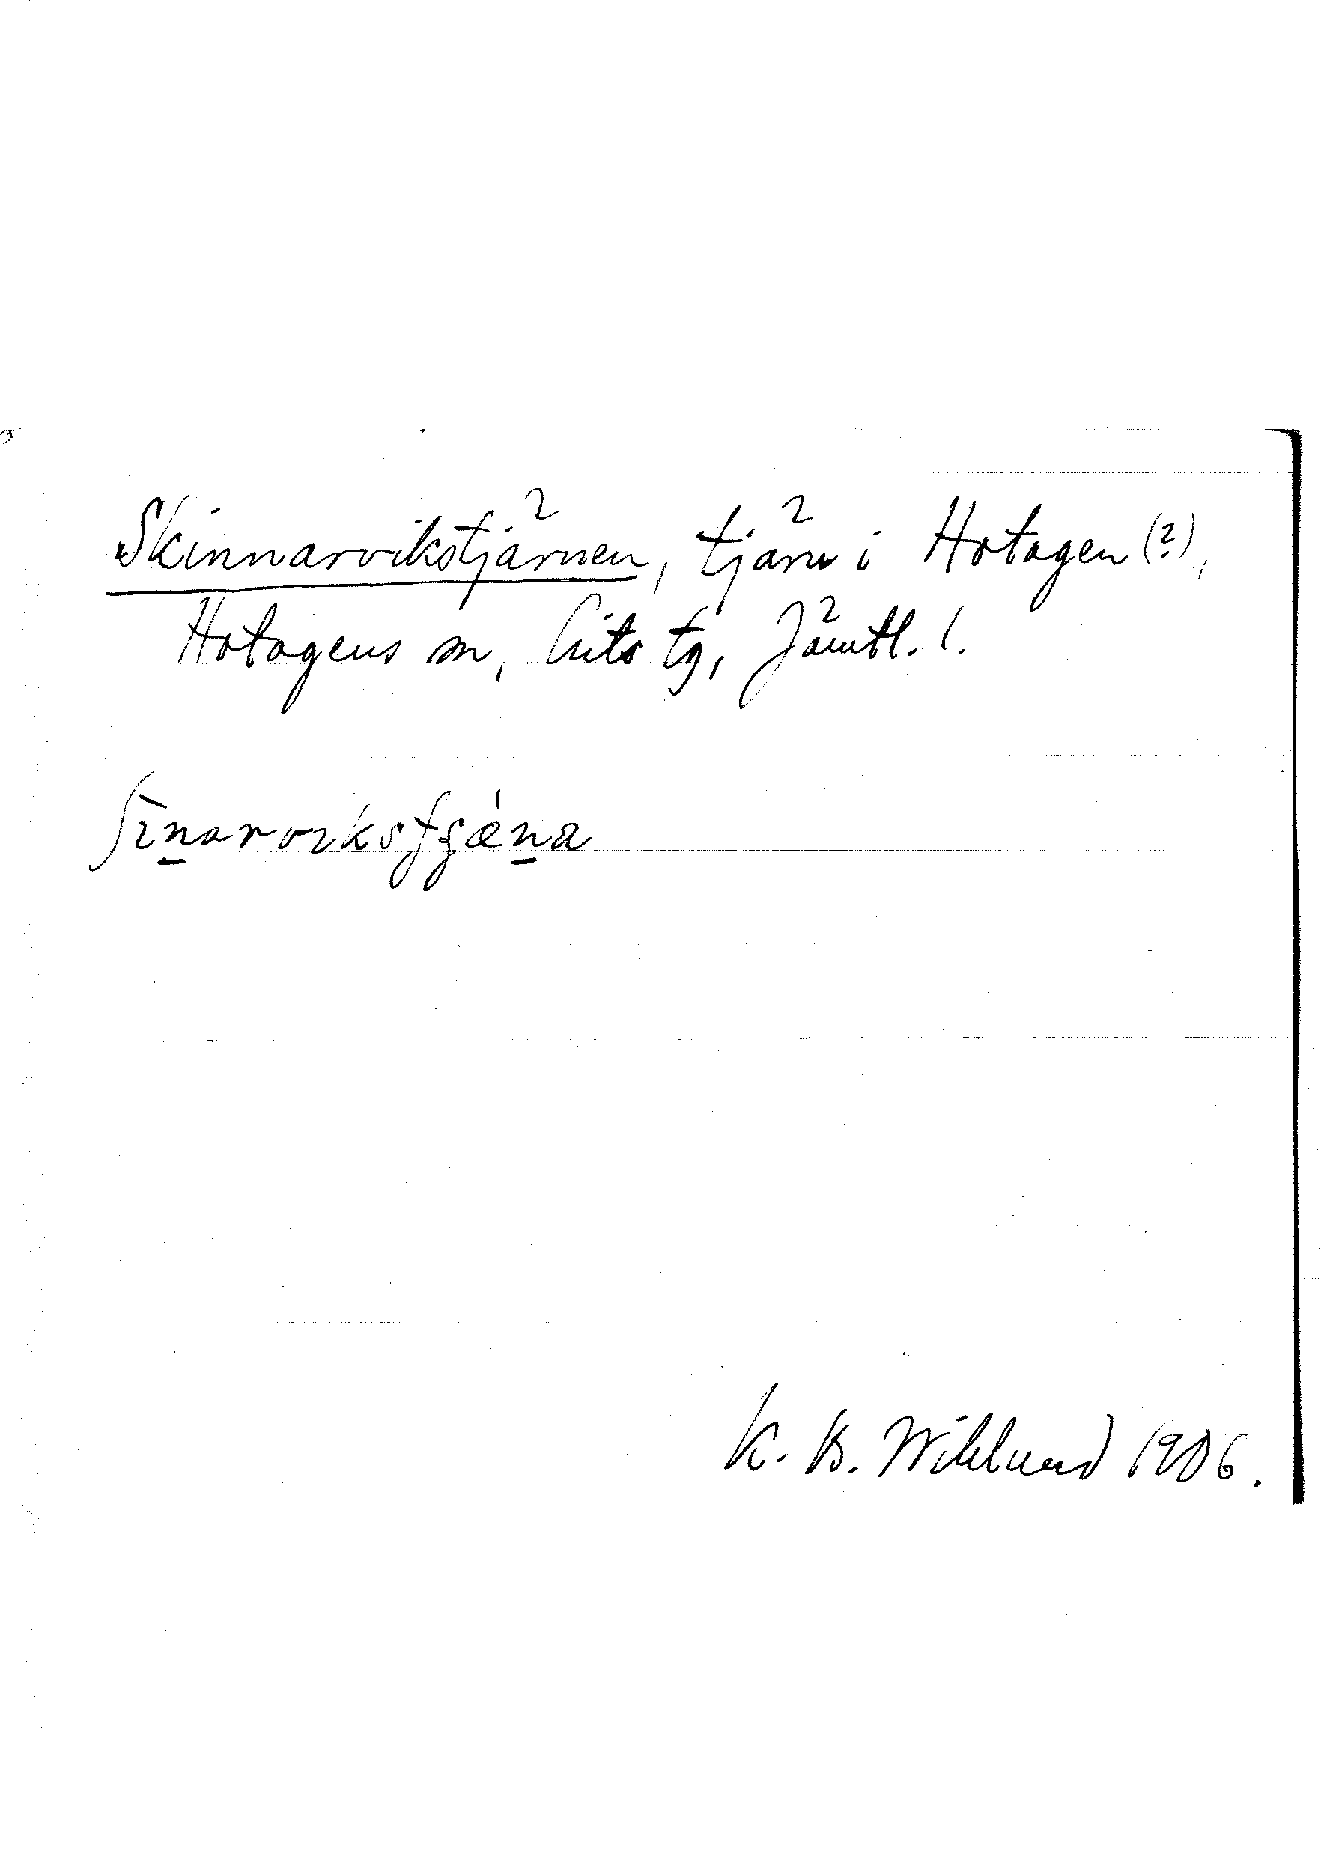 Skinnarvikstjärnen, tjärn i Hotagen (?),
Hotagens sn, Lits tg, Jämtl. l.
K. B. Wiklund 1906.